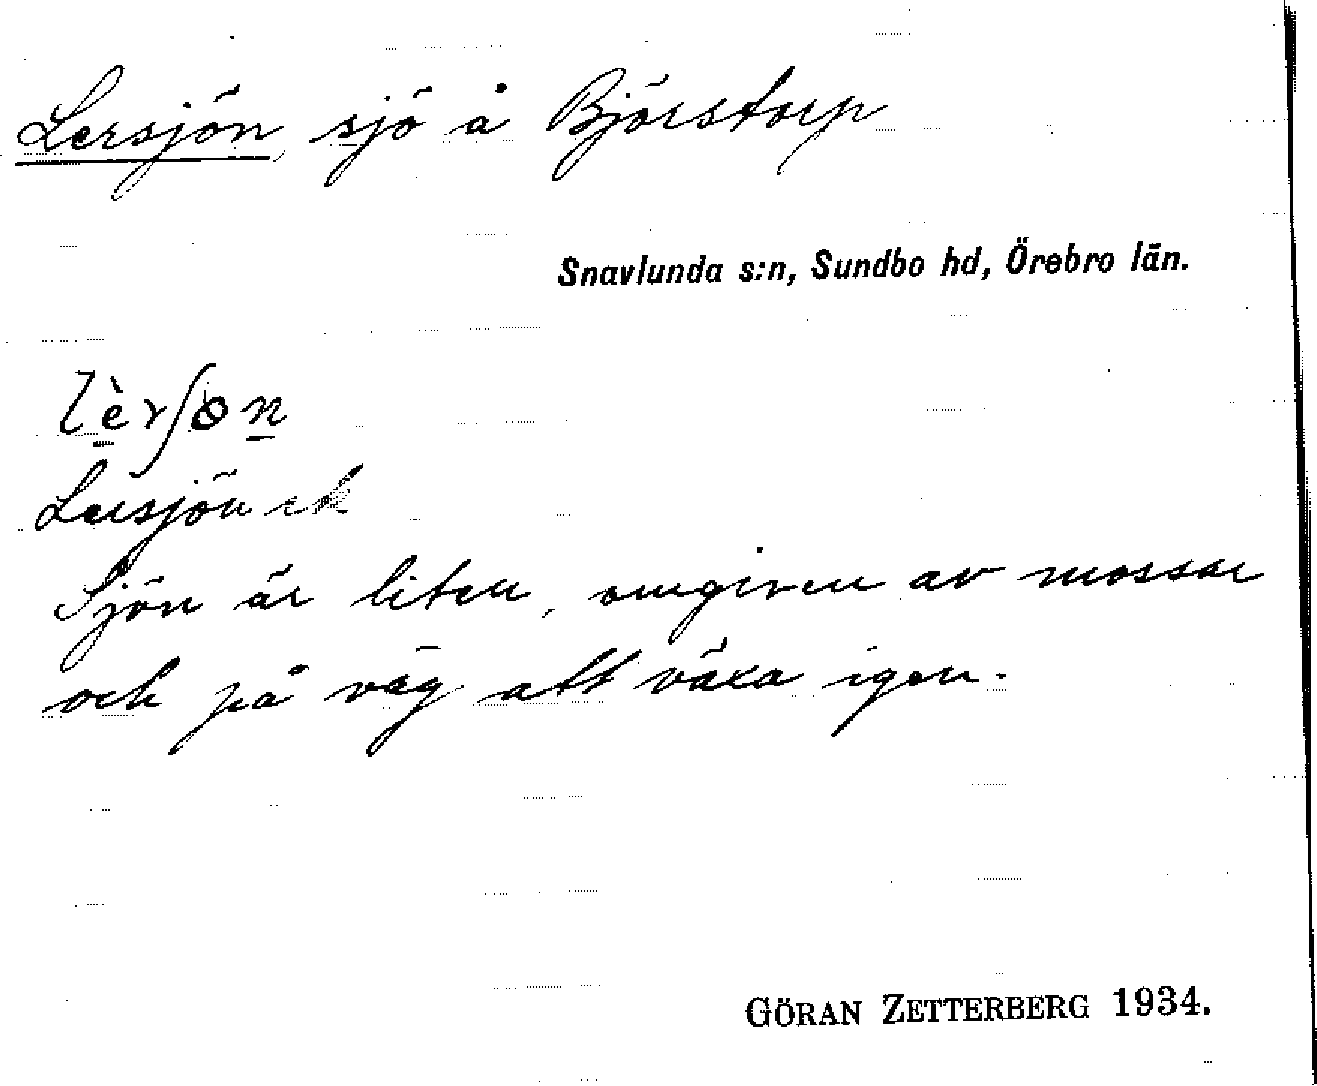 Lersjön, sjö å Björstorp
Snavlunda s:n, Sundbo hd, Örebro län.
lèrʃon
Lersjön ek
Sjön är liten, omgiven av mossar
och på väg att växa igen.
GÖRAN ZETTERBERG 1934.